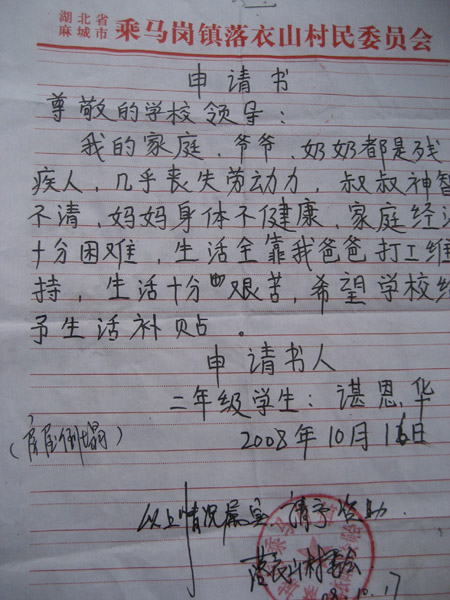 湖北省
麻城市 乘马岗镇落衣山村民委员会
申请书
尊敬的学校领导:
我的家庭、爷爷、奶奶都是残
疾人,几乎丧失劳动力,叔叔神智
不清,妈妈身体不健康,家庭经济
十分困难,生活全靠我爸爸打工维
持,生活十分艰苦,希望学校给
予生活补贴。
申请书人
二年级学生:谌恩华
(房屋倒塌)
2008年10月16日
以上情况属实 请予资助
落衣山村委会
08.10.17